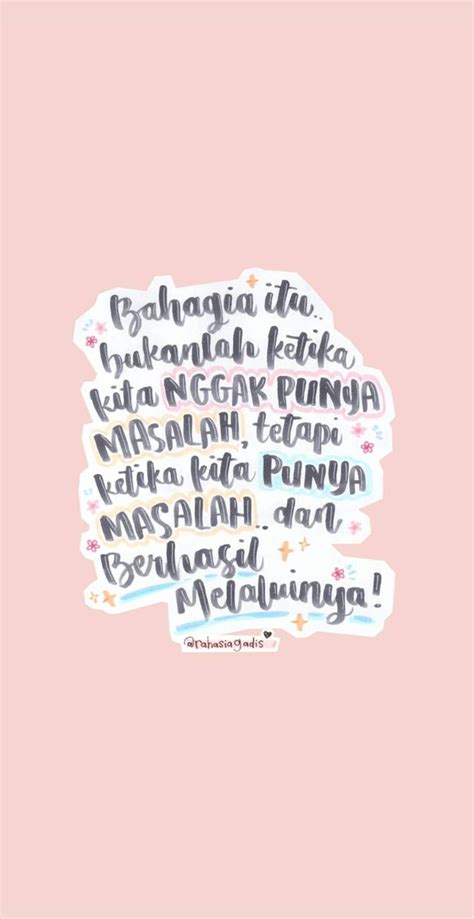 Bahagia itu..
bukanlah ketika
kita NGGAK PUNYA
MASALAH, tetapi
ketika kita PUNYA
MASALAH.. dan
Berhasil
Melaluinya!
@rahasiagadis